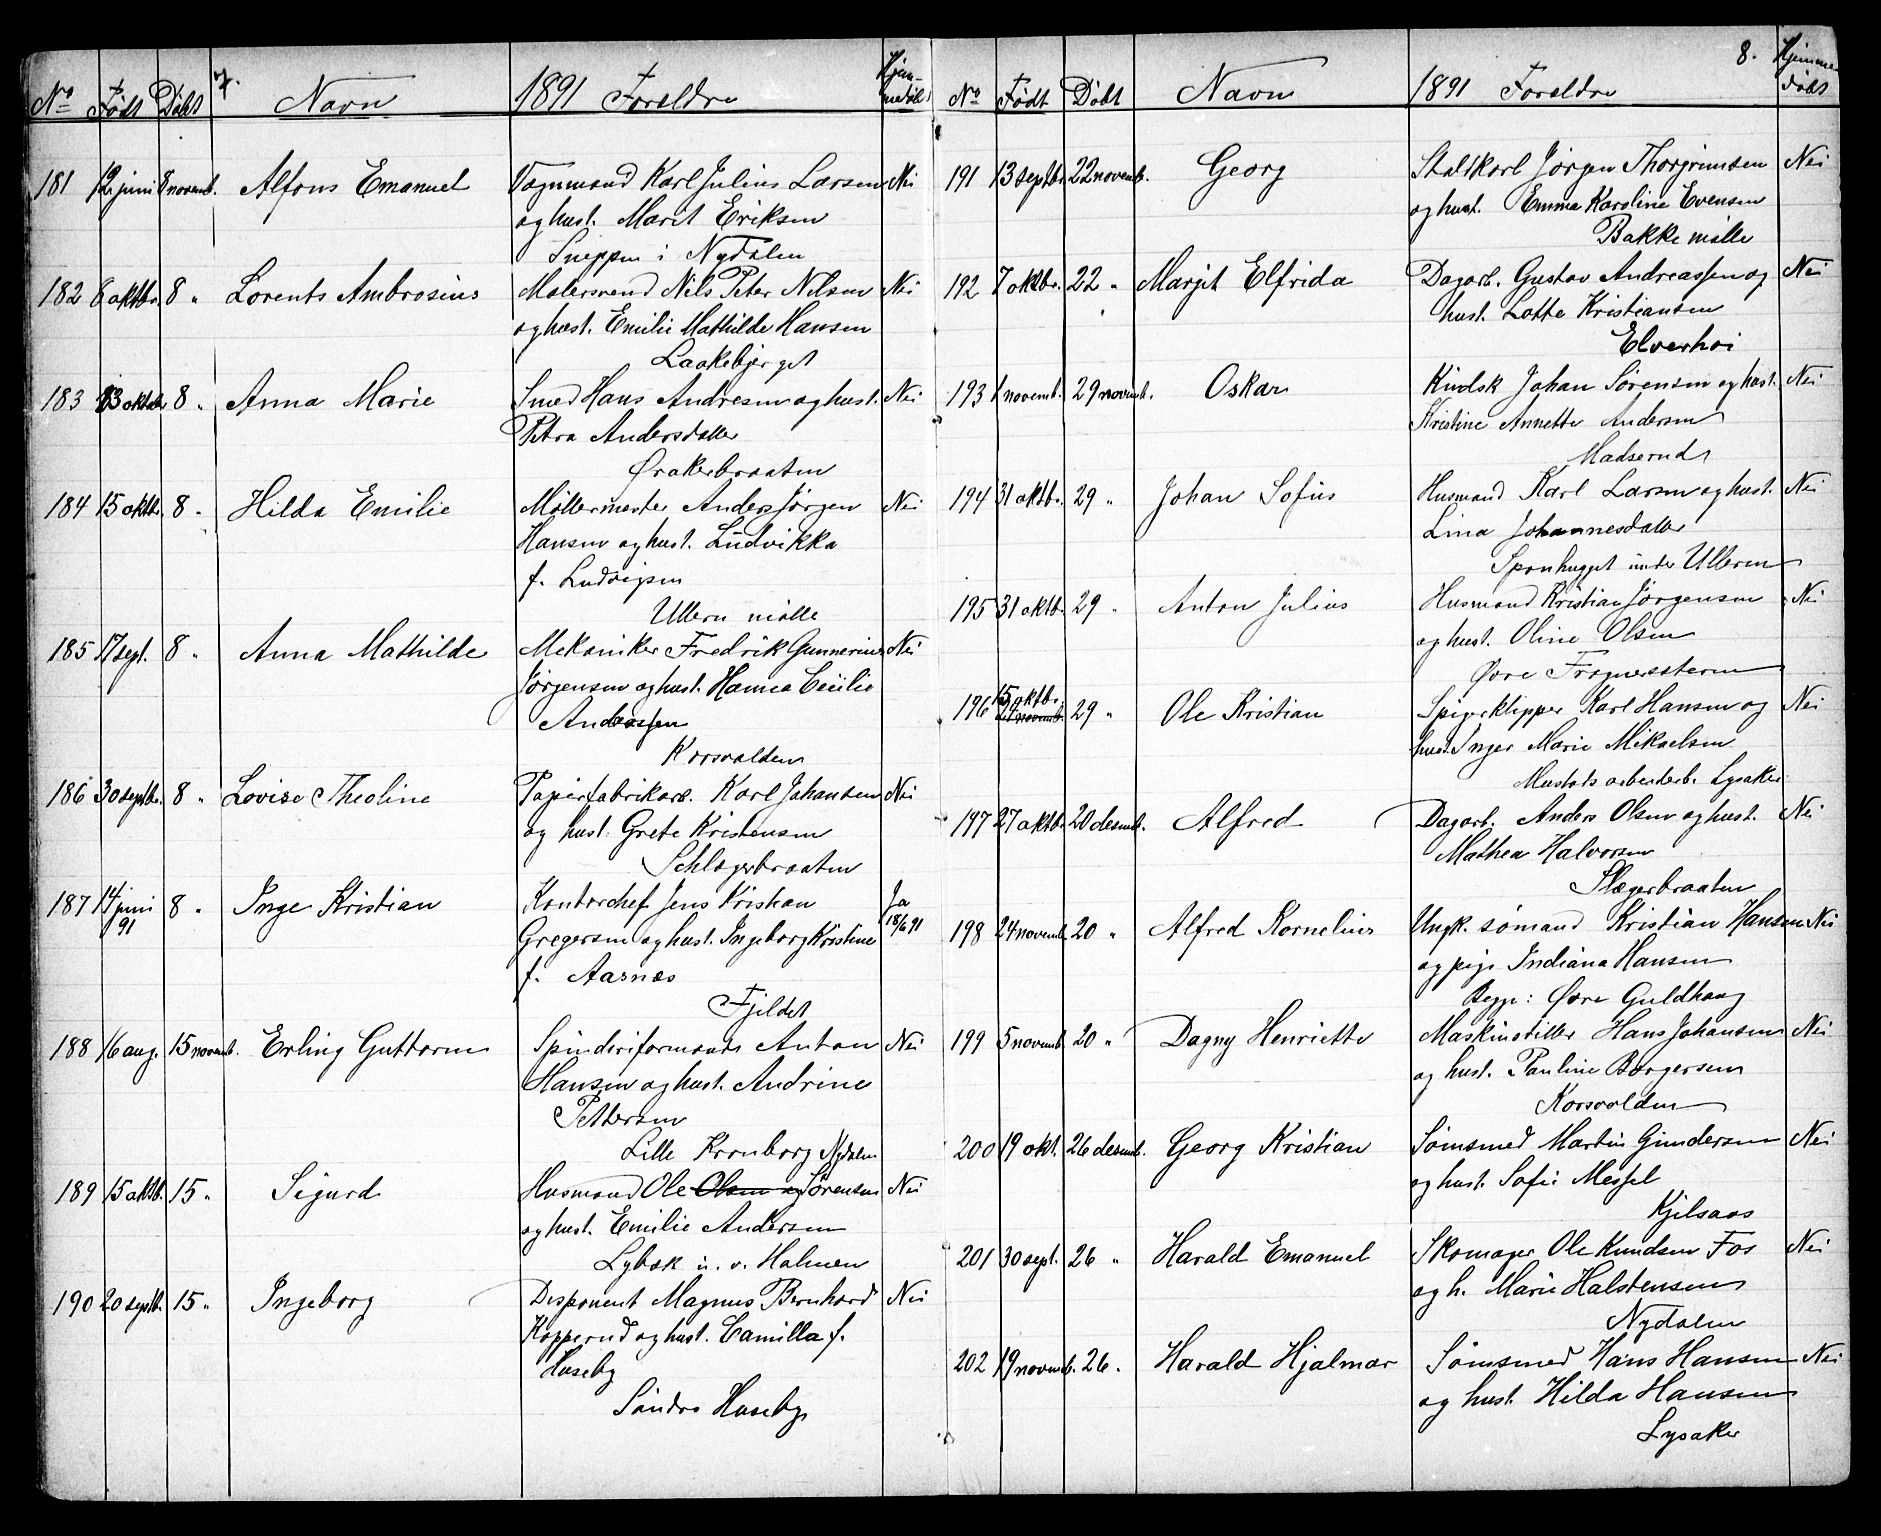 7.
No Født Døbt Navn 1891 Foreldre Hjem-
medøbt
181 12 juni 8 novemb. Alfons Emanuel Vognmand Karl Julius Larsen Nei
og hust. Marit Eriksen
Sneppen i Nydalen
182 8 oktbr. 8 " Lorents Ambrosius Malersvend Nils Peter Nilsen Nei
og hust. Emilie Mathilde Hansen
Laakebjerget
183 13 oktbr 8 " Anna Marie Smed Hans Andresen og hust. Nei
Petra Andersdatter
Ørakerbraaten
184 15 oktb. 8 " Hilda Emilie Møllermester Anders Jørgen Nei
Hansen og hust. Ludvikka
f. Ludvigsen
Ullern mølle
185 17 sept. 8 " Anna Mathilde Mekaniker Fredrik Gunnerius Nei
Jørgensen og hust. Hanna Cecilie
Andreassen
Korsvolden
186 30 septbr. 8 " Lovise Theoline Papirfabrikarb. Karl Johansen Nei
og hust. Grete Kristensen
Schlægerbraaten
187 14 juni 8 " Inge Kristian Kontorchef Jens Kristian Ja
91 18/6 91
Gregersen og hust. Ingeborg Kristine
f. Aarnæs
Fjeldet
188 16 aug. 15 novemb. Erling Guttorm Spinderiformand Anton Nei
Hansen og hust. Andrine
Pettersen
Lille Kronborg Nydalen
189 15 oktb. 15 " Sigurd Husmand Ole Olsen og Sørensen Nei
og hust. Emilie Andersen
Lybæk u. v. Holmen
190 20 septb. 15 " Ingeborg Disponent Magnus Bernhard Nei
Kopperud og hust. Camilla f.
Huseby
Søndre Huseby
8.
No Født Døbt Navn 1891 Foreldre Hjemme
døbt
191 13 septbr. 22 novemb. Georg Staldkarl Jørgen Thorgrimsen Nei
og hust. Emma Karoline Evensen
Bakke mølle
192 7 oktbr. 22 " Margit Elfrida Dagarb. Gustav Andreassen og Nei
hust. Lotte Kristiansen
Elverhøi
193 1 novemb. 29 novemb. Oskar Kudsk Johan Sørensen og hust. Nei
Kristine Annette Andersen
Madserud
194 31 oktb. 29 " Johan Sofus Husmand Karl Larsen og hust. Nei
Lina Johannesdatter
Sponhugget under Ullern
195 31 oktb. 29 " Anton Julius Husmand Kristian Jørgensen Nei
og hust. Oline Olsen
Øvre Frognersæteren
196 15 oktb. 29 " Ole Kristian Spigerklipper Karl Hansen og Nei
hust. Inger Marie Mikaelsen
Mustads arbeiderb. Lysaker
197 27 oktb. 20 desemb. Alfred Dagarb. Anders Olsen og hust. Nei
Mathea Halvorsen
Slægerbraaten
198 24 novemb. 20 " Alfred Kornelius Ungk. sømand Kristian Hansen Nei
og pige Indiana Hansen
Begge: Øvre Guldhaug
199 5 novemb 20 " Dagny Henriette Maskinstiller Hans Johansen Nei
og hust. Pauline Borgersen
Korsvolden
200 19 okt. 26 desemb. Georg Kristian Sømsmed Martin Gundersen Nei
og hust. Sofie Messel
Kjelsaas
201 30 sept. 26 " Harald Emanuel Skomager Ole Knudsen Fos Nei
og h. Marie Halstensen
Nydalen
202 19 novemb. 26 " Harald Hjalmar Sømsmed Hans Hansen Nei
og hust. Hilda Hansen
Lysaker